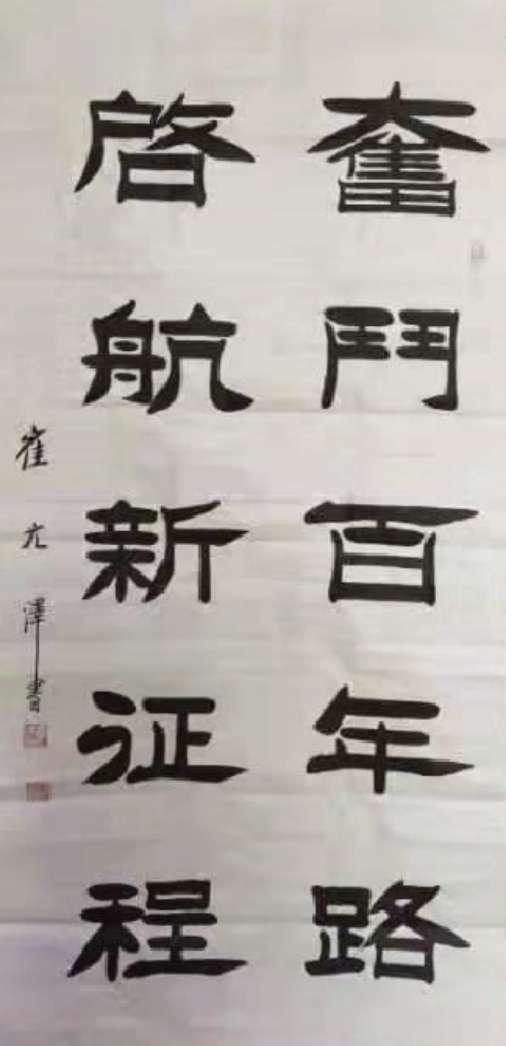 奮鬥百年路
啓航新征程
崔亢澤書